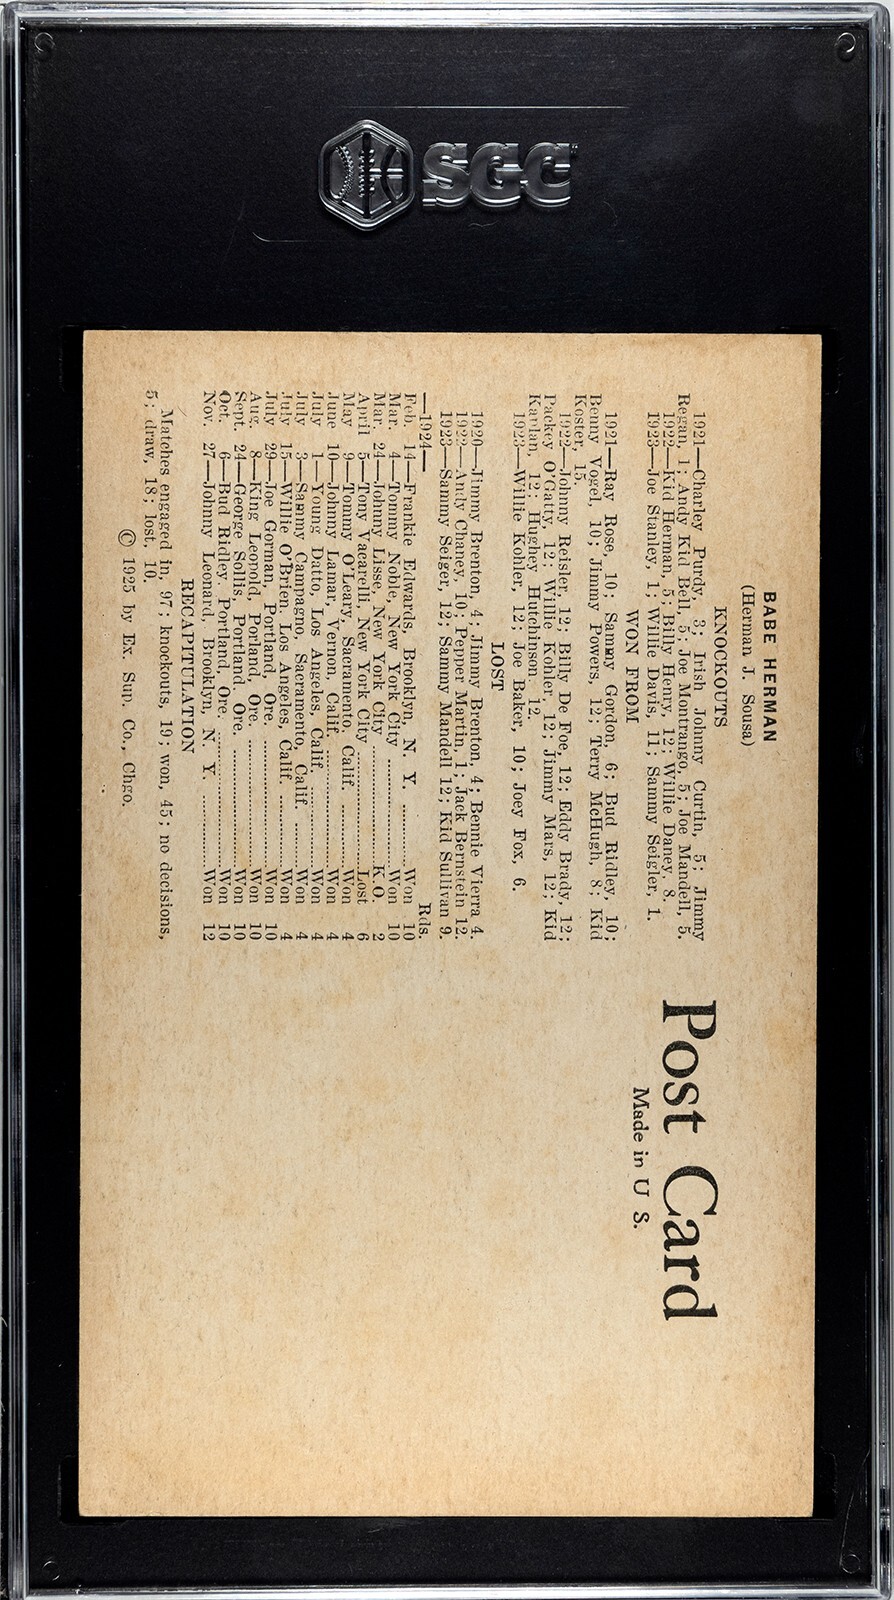 SGC
BABE HERMAN
(Herman J. Sousa)
KNOCKOUTS
1921—Charley Purdy, 3; Irish Johnny Curtin, 5; Jimmy
Regan, 1; Andy Kid Bell, 5; Joe Montrango, 5; Joe Mandell, 5.
1922—Kid Herman, 5; Billy Henry, 12; Willie Daney, 8.
1923—Joe Stanley, 1; Willie Davis, 11; Sammy Seigler, 1.
WON FROM
1921—Ray Rose, 10; Sammy Gordon, 6; Bud Ridley, 10;
Benny Vogel, 10; Jimmy Powers, 12; Terry McHugh, 8; Kid
Koster, 15.
1922—Johnny Reisler, 12; Billy De Foe, 12; Eddy Brady, 12;
Packey O'Gatty, 12; Willie Kohler, 12; Jimmy Mars, 12; Kid
Kaplan, 12; Hughey Hutchinson, 12.
1923—Willie Kohler, 12; Joe Baker, 10; Joey Fox, 6.
LOST
1920—Jimmy Brenton, 4; Jimmy Brenton, 4; Bennie Vierra, 4.
1922—Andy Chaney, 10; Pepper Martin, 1; Jack Bernstein 12.
1923—Sammy Seiger, 12; Sammy Mandell 12; Kid Sullivan 9.
—1924— Rds.
Feb. 14—Frankie Edwards, Brooklyn, N. Y. ..........Won 10
Mar. 4—Tommy Noble, New York City ..............Won 10
Mar. 24—Johnny Lisse, New York City ..............K.O. 2
April 5—Tony Vacarelli, New York City ..............Lost 6
May 9—Tommy O'Leary, Sacramento, Calif. ..........Won 4
June 10—Johnny Lamar, Vernon, Calif. ..............Won 4
July 1—Young Datto, Los Angeles, Calif. ............Won 4
July 3—Sammy Campagno, Sacramento, Calif. ......Won 4
July 15—Willie O'Brien, Los Angeles, Calif. ..........Won 4
July 29—Joe Gorman, Portland, Ore. ................Won 10
Aug. 8—King Leopold, Portland, Ore. ..............Won 10
Sept. 24—George Sollis, Portland Ore. ..............Won 10
Oct. 6—Bud Ridley, Portland, Ore. ................Won 10
Nov. 27—Johnny Leonard, Brooklyn, N. Y. ..........Won 12
RECAPITULATION
Matches engaged in, 97; knockouts, 19; won, 45; no decisions,
5; draw, 18; lost, 10.
© 1925 by Ex. Sup. Co., Chgo.
Post Card
Made in U S.